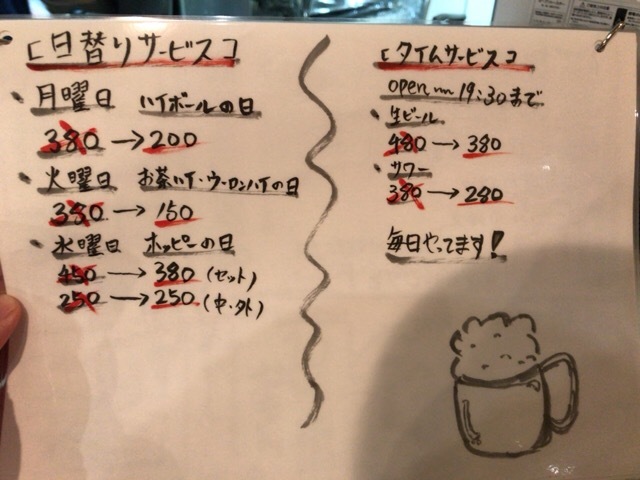 [日替りサービス]
・月曜日 ハイボールの日
380→200
・火曜日 お茶ハイ・ウーロンハイの日
380→150
・水曜日 ホッピーの日
450→380(セット)
250→250(中・外)
[タイムサービス]
open〜19:30まで
・生ビール
480→380
・サワー
380→280
毎日やってます!